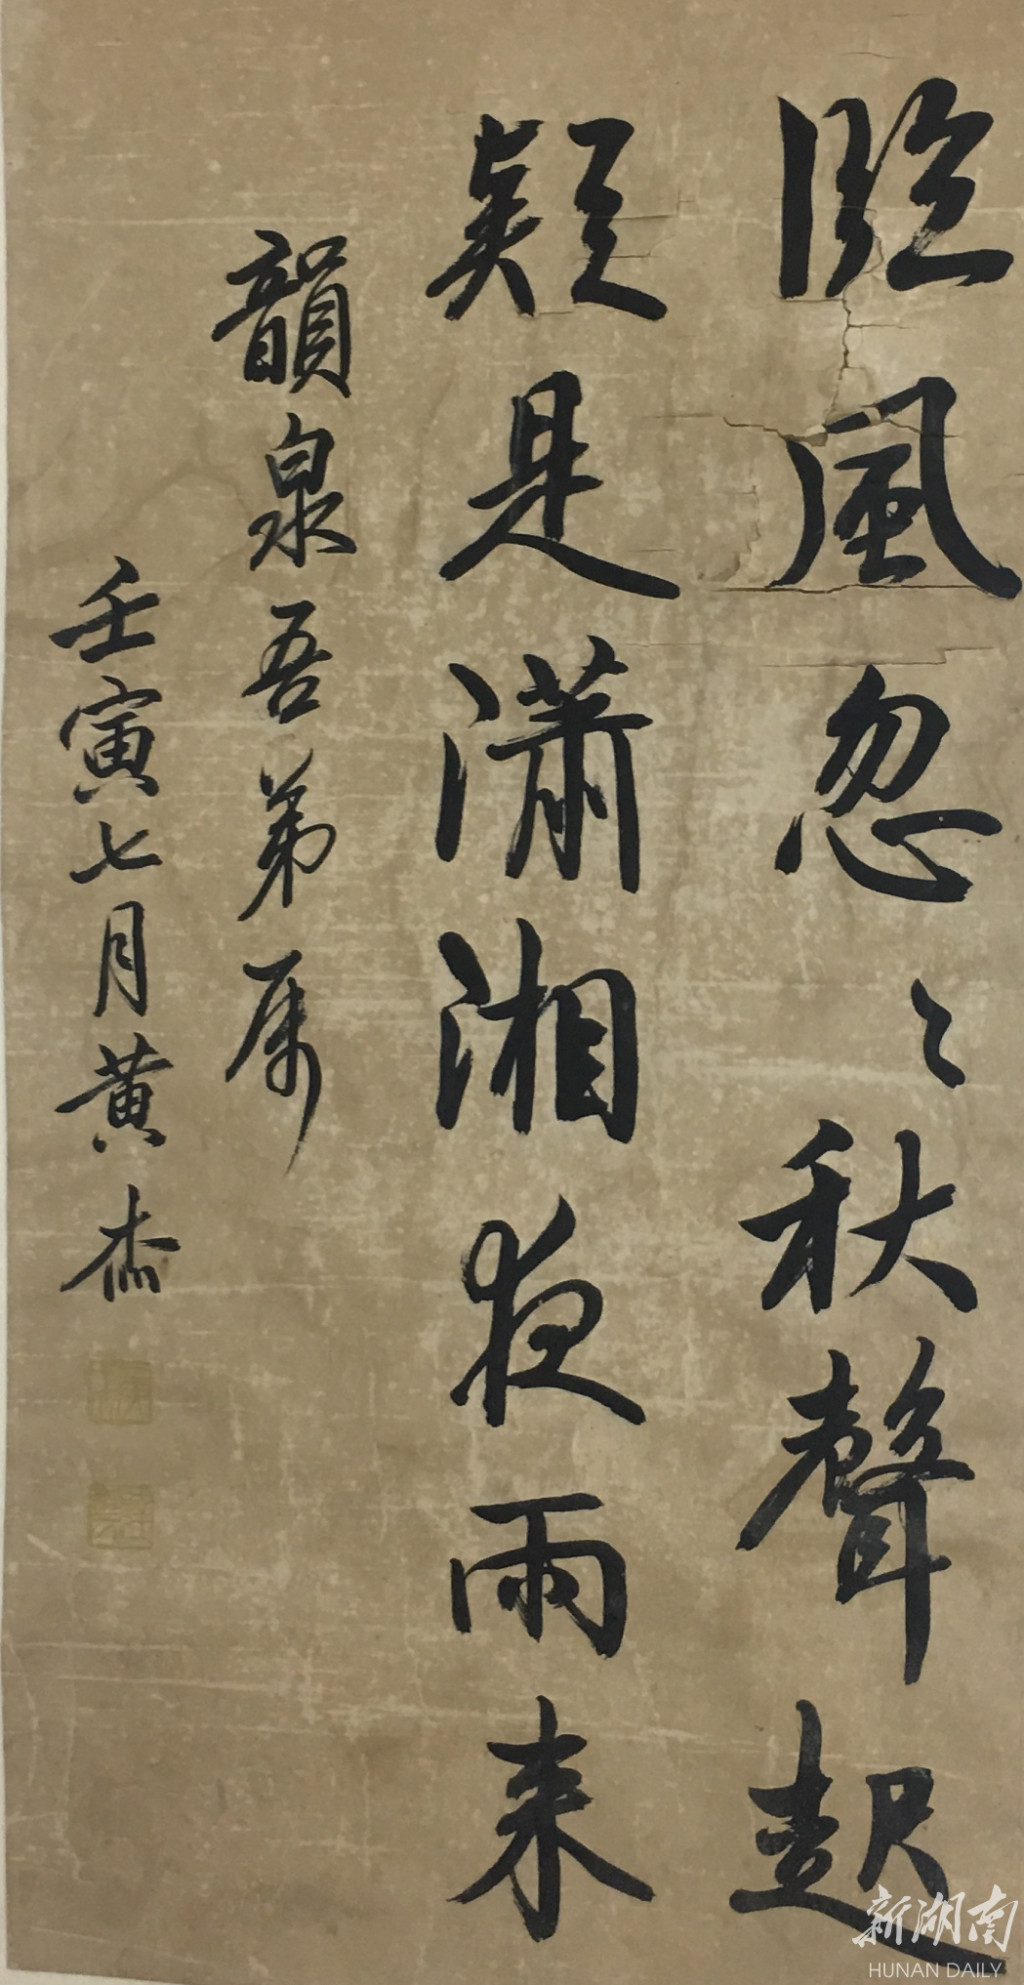 臨風忽〻秋聲起
疑是瀟湘夜雨来
韻泉吾弟属
壬寅七月黄杰
新湖南
HUNAN DAILY